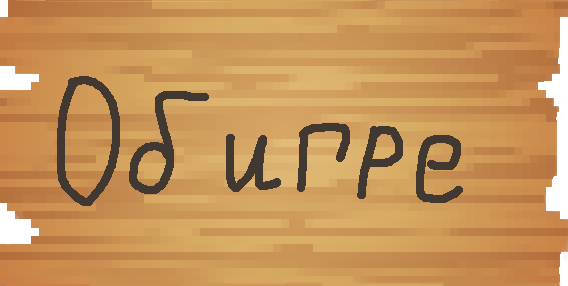 Об игре